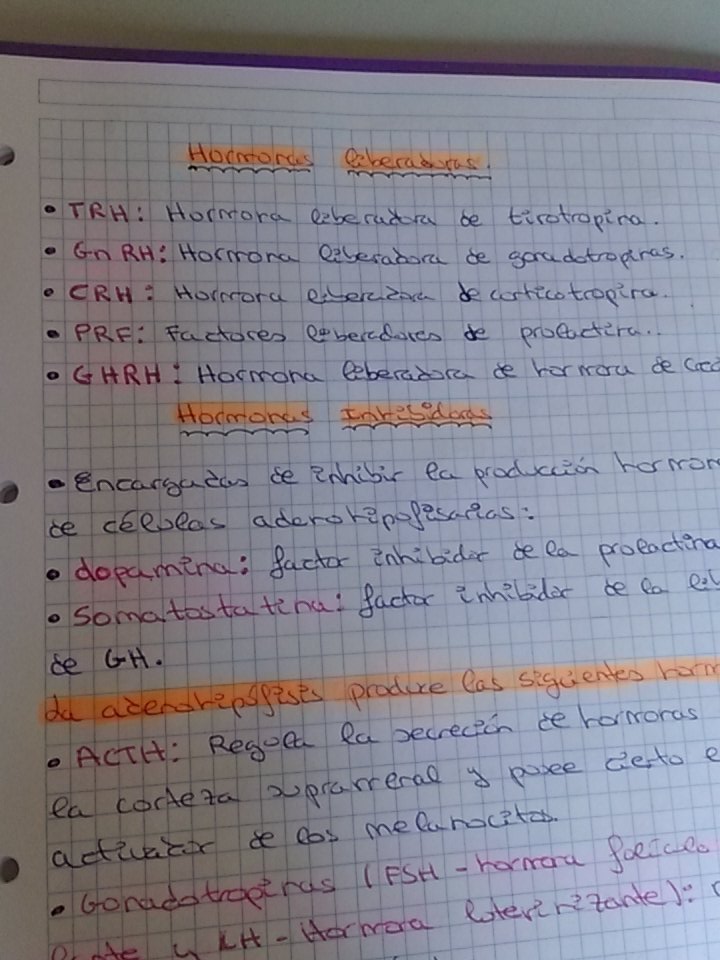 Hormonas liberadoras.
• TRH: Hormona liberadora de tirotropina.
• GnRH: Hormona liberadora de gonadotropinas.
• CRH: Hormona liberadora de corticotropina.
• PRF: Factores liberadores de prolactina.
• GHRH: Hormona liberadora de hormona de
Hormonas Inhibidoras
• encargadas de inhibir la producción
de células adenohipofisarias:
• dopamina: factor inhibidor de la prolactina
• Somatostatina: factor inhibidor de la
de GH.
La adenohipófisis produce las siguientes
• ACTH: Regula la secreción de hormonas
la corteza suprarrenal y posee cierto
activador de los melanocitos.
• Gonadotropinas (FSH-hormona
y LH-Hormona luteinizante):